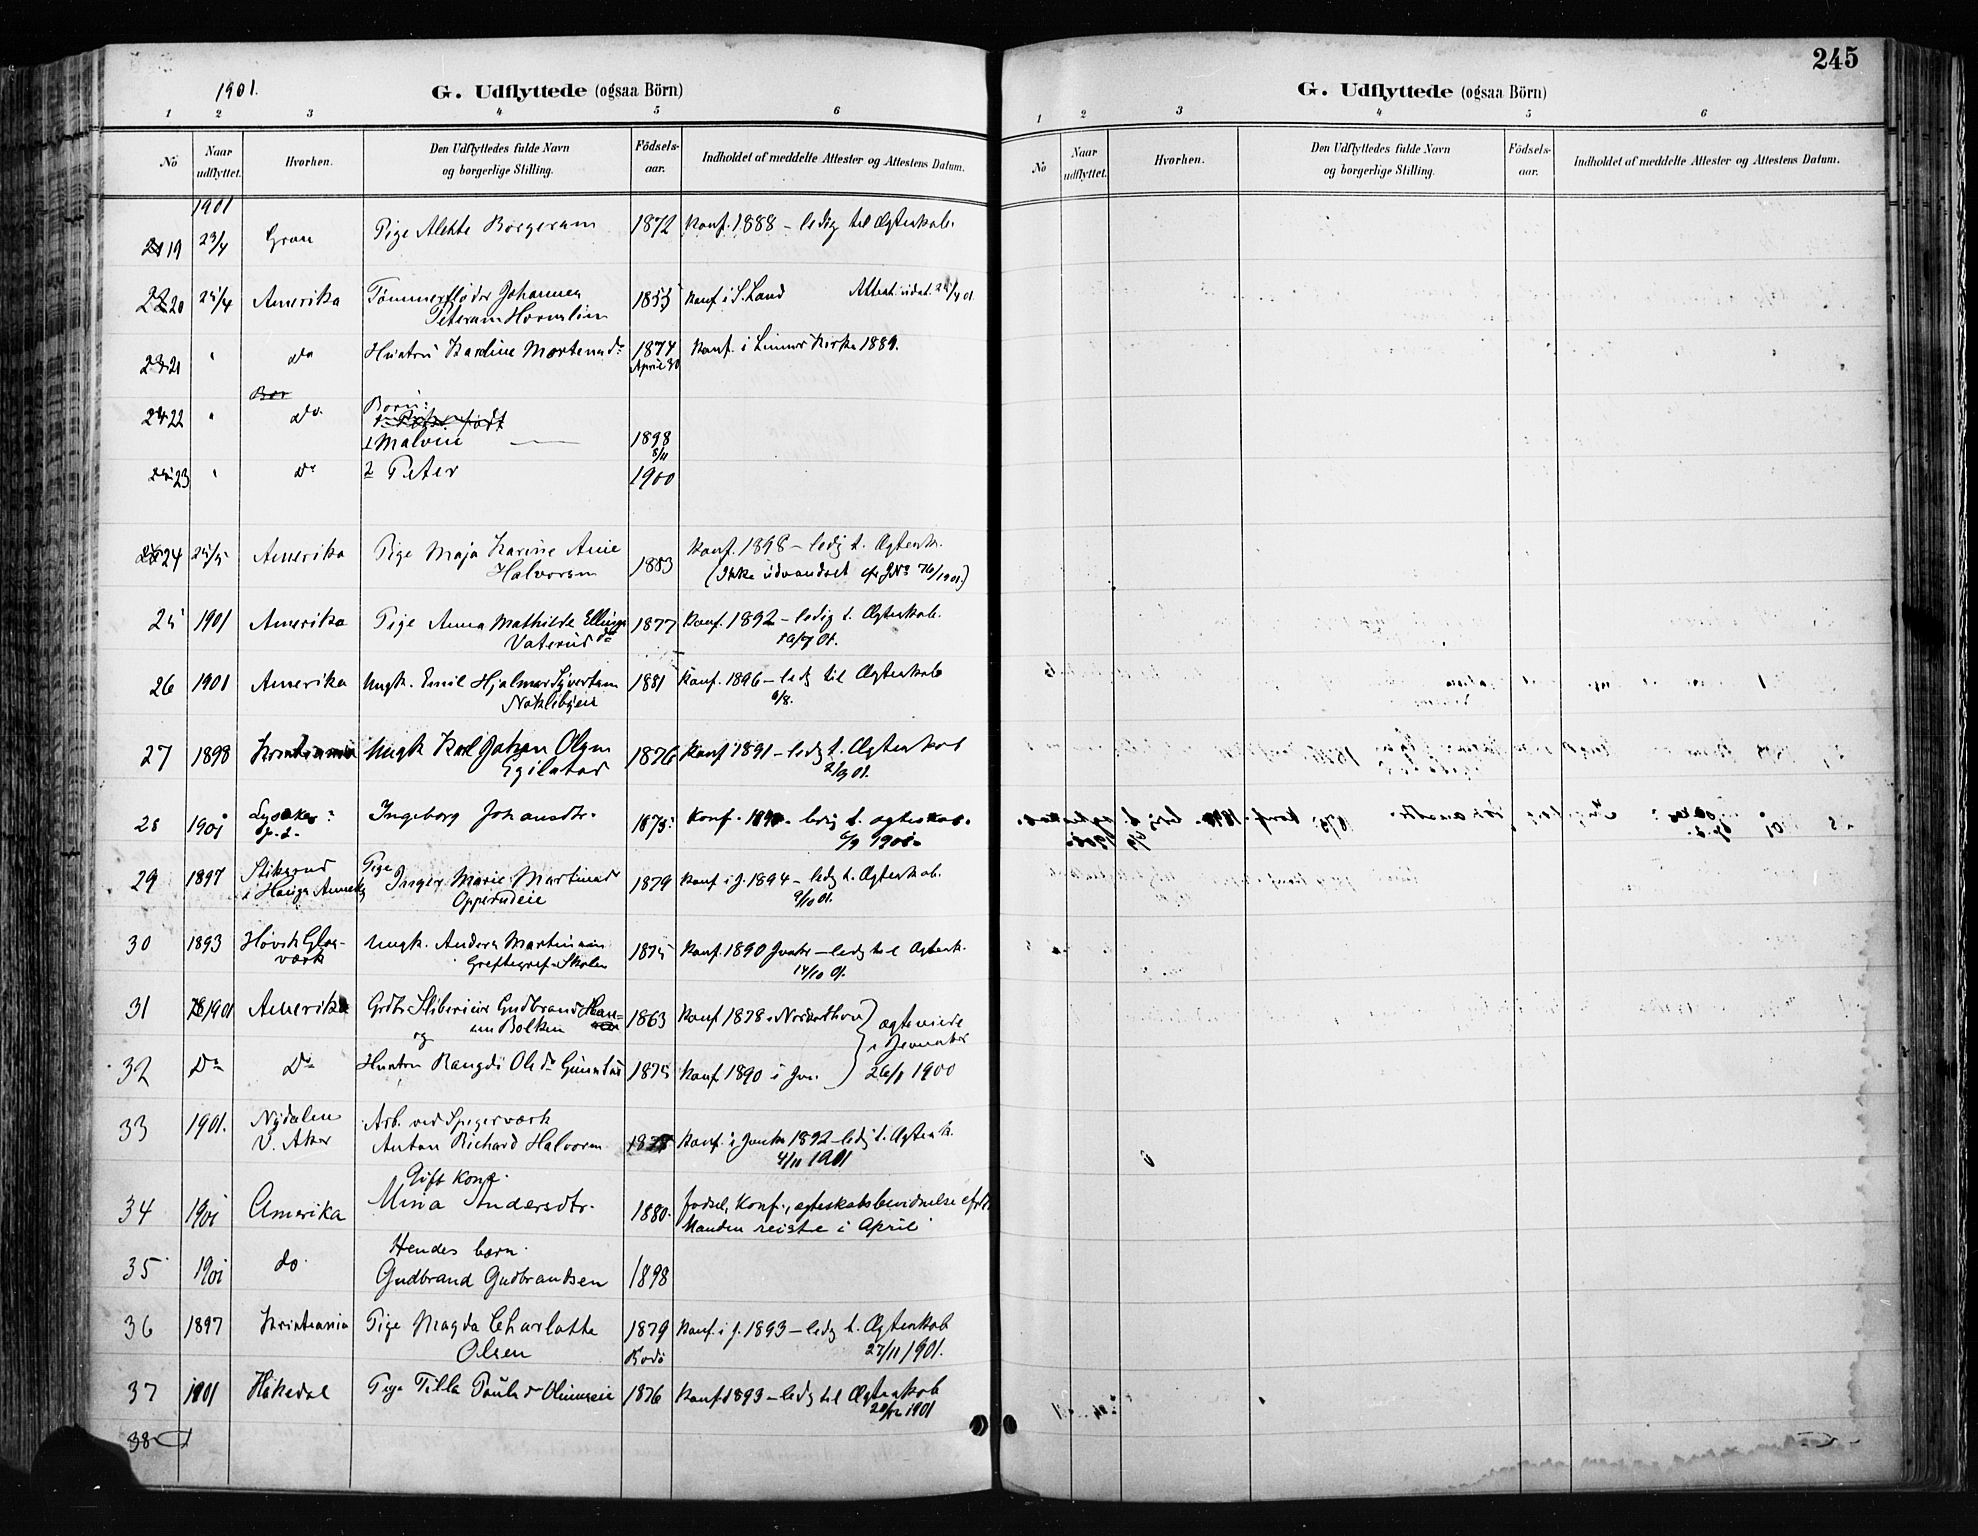 245
1901.
G. Udflyttede (ogsaa Börn)
1 2 3 4 5 6
No
Naar udflyttet.
Hvorhen.
Den Udflyttedes fulde Navn og borgerlige Stilling.
Födsels-aar.
Indholdet af meddelte Attester og Attestens Datum.
1901
19 23/4 Gran Pige Alette Borgersen 1872 Konf. 1888 – ledig til Ægteskab.
20 25/4 Amerika Tømmerfløder Johannes 1855 Konf. i S. Land Attest udst. 25/4 01
Petersen Hornslien
21 " do Hustru Karoline Mortensdr 1874 Konf. i Lunner Kirke 1889.
April 30
Bør
22 " do. Børn:
1 Malvin — 1898
8/11
23 " do 2 Peter 1900
24 25/5 Amerika Pige Maja Karine Anie 1883 Konf. 1898 – ledig t. Ægtesk.
Halvorsen (Ikke udvandret cfr JNo 76/1901.)
25 1901 Amerika Pige Anna Mathilde Ellings 1877 Konf. 1892 – ledig t. Ægteskab.
dr Vaterud 19/7 01.
26 1901 Amerika Ungk. Emil Hjalmar Syvertsen 1881 Konf. 1896 – ledig til Ægteskab
Nøklebyeie 6/8.
27 1898 Kristiania Ungk Karl Johan Olsen 1876 Konf 1891 – ledig t. Ægteskab
2/9 01.
28 1901 Lysaker Ingeborg Johansdtr. 1875 Konf. 1890. ledig t. ægteskab.
6/9 1901.
29 1897 Pige Inger Marie Martinsdr 1879 Konf i J. 1894 – ledig t. Ægteskab.
Opperudeie 9/10 01.
30 1893 Høvik Glas- Ungk. Anders Martinsen 1875 Konf. 1890 – ledig til Ægtesk.
værk 14/10 01.
31 1901 Amerika Gudbrand Han- 1863 Konf 1878 i Norderhov } ægteviede
sen Bolken i Jevnaker
og
32 Do Do Hustru Rangdi Olsdr 1875 Konf. 1890 i Jvn. 26/1 1900
33 1901. Nydalen Arb. ved Spigerværk
V. Aker Anton Richard Halvorsen Konf. i Jvnkr 1892 – ledig t. Ægtesk.
4/11 1901
Gift Kone
34 1901 Amerika Mina Andersdtr. 1880. fødsel, Konf., ægteskabsbevidnelse
Manden reiste i April
35 1901 do. Hendes barn.
Gudbrand Gudbrandsen 1898
36 1897 Kristiania Pige Magda Charlotte 1879 Konf. i J. 1893 – ledig t. Ægteskab
Olsen Bodø 27/11 1901.
37 1901 Hakedal Pige Tilla 1876 Konf 1893 – ledig til Ægteskab
28/12 1901
38
G. Udflyttede (ogsaa Börn)
1 2 3 4 5 6
No
Naar udflyttet.
Hvorhen.
Den Udflyttedes fulde Navn og borgerlige Stilling.
Födsels-aar.
Indholdet af meddelte Attester og Attestens Datum.